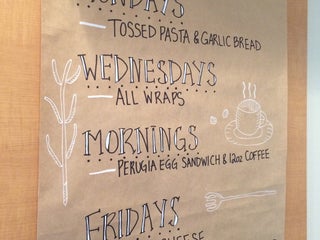 TOSSED PASTA & GARLIC BREAD
WEDNESDAYS
ALL WRAPS
MORNINGS
PERUGIA EGG SANDWICH & 12oz COFFEE
FRIDAYS
CHEESE